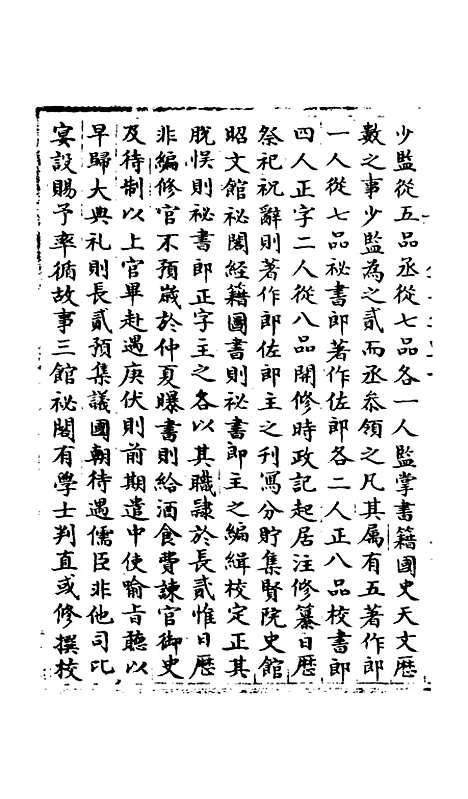 少監從五品丞從七品各一人監掌書籍國史天文曆
數之事少監為之貳而丞叅領之凡其属有五著作郎
一人從七品祕書郎著作佐郎各二人正八品校書郎
四人正字二人從八品開修時政記起居注修纂日曆
祭祀祝辭則著作郎佐郎主之刊寫分貯集賢院史館
昭文館祕閣經籍圖書則祕書郎主之編緝校定正其
脫悞則祕書郎正字主之各以其職隷於長貳惟日曆
非編修官不預歲於仲夏曝書則給酒食費諫官御史
及待制以上官畢赴遇庚伏則前期遣中使喻旨聽以
早歸大典礼則長貳預集議國朝待遇儒臣非他司比
宴設賜予率循故事三館祕閣有學士判直或修撰校